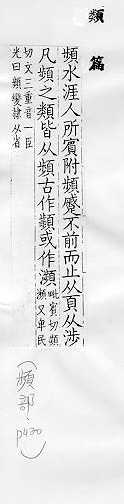 類篇
頻水涯人所賓附頻蹙不前而止从頁从涉
凡頻之類皆从頻古作顰或作瀕
毗賓切頻
瀕又卑民
切文三重音一臣
光曰頻變隷从省
(頻部
p420)